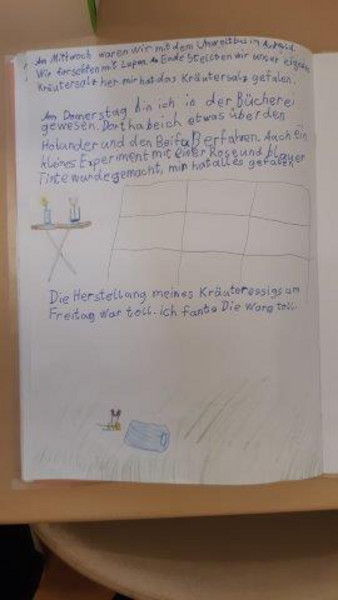 Am Mittwoch waren wir mit dem Umweltbus im
Wir forschten mit Lupen. Am Ende stellten wir unser eigenes
Kräutersalz her. mir hat das Kräutersalz gefalen.
Am Donnerstag bin ich in der Bücherei
gewesen. Dort habe ich etwas über den
Holunder und den Beifuß erfahren. Auch ein
kleines Experiment mit einer Rose und blauer
Tinte wurde gemacht, mir hat alles gefalen.
Die Herstellung meines Kräuteressigs am
Freitag war toll. ich fante Die Woro toll.